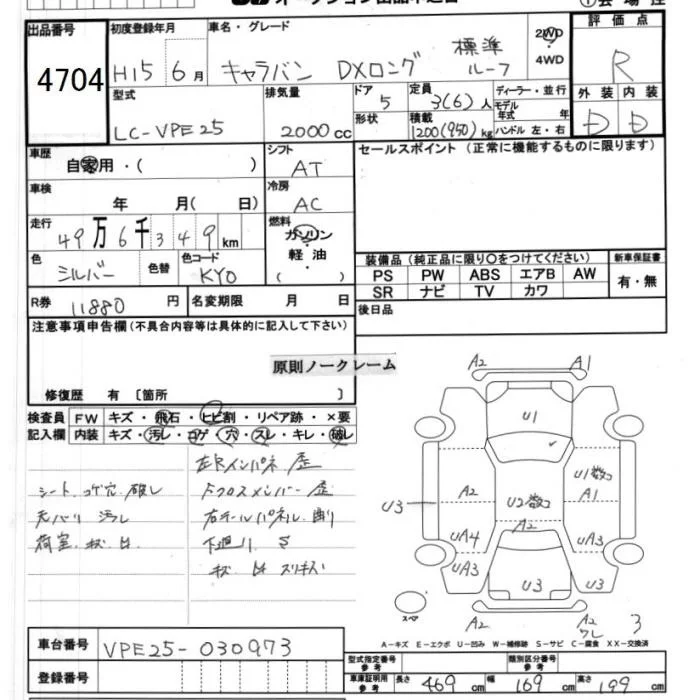 出品番号
4704
初度登録年月
H15 6月
車名・グレード
キャラバン DXロング 標準ルーフ
2WD
4WD
評価点
R
型式
LC-VPE25
排気量
2000cc
ドア
5
形状
定員
3(6)人
積載
1200(950)kg
ディーラー・並行
モデル年式 年
ハンドル 左・右
外装 内装
D D
車歴
自家用・( )
シフト
AT
セールスポイント (正常に機能するものに限ります)
車検
年 月( 日)
冷房
AC
走行
49万6千349km
燃料
ガソリン
軽油
( )
色
シルバー
色替
色コード
KY0
装備品 (純正品に限り○をつけてください)
新車保証書
PS PW ABS エアB AW
有・無
SR ナビ TV カワ
R券 11880円
名変期限 月 日
後日品
注意事項申告欄 (不具合内容等は具体的に記入して下さい)
原則ノークレーム
修復歴 有 〔箇所 〕
検査員記入欄
FW キズ・飛石・ヒビ割・リペア跡・×要
内装 キズ・汚レ・コゲ・穴・スレ・キレ・破レ
左Rインパネ 歪
シート コゲ穴 破レ
Fクロスメンバー 歪
天バリ 汚レ
右テールパネル 凹リ
荷室 キズ 凹
下廻リ S
キズ 凹 スリキズ
A2 A1
U1
U3
A2
U2数コ
U1数コ
A1
A2
UA4
UA3
UA3
U3
U3
スペア
A2
A2
ワレ
3
A-キズ E-エクボ U-凹み W-補修跡 S-サビ C-腐食 XX-交換済
車台番号
VPE25-030973
登録番号
型式指定番号 参考
類別区分番号 参考
車庫証明用 参考
長さ 469cm
幅 169cm
高さ 199cm